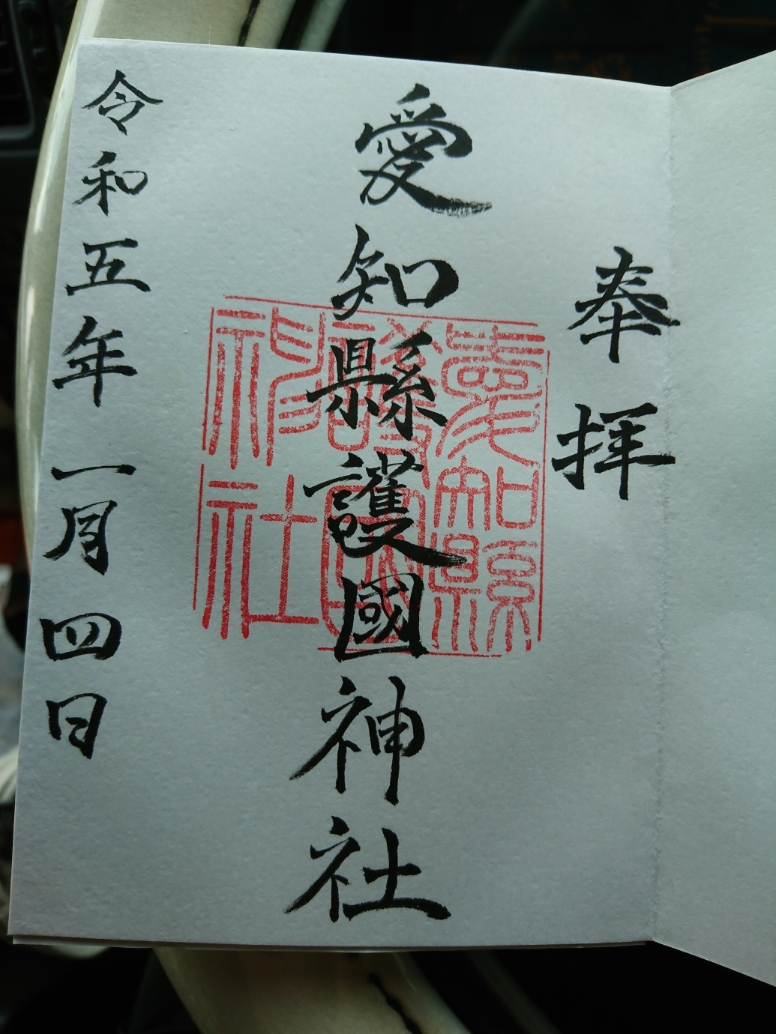 奉拝
愛知縣護國神社
愛知縣
護國
神社
令和五年一月四日